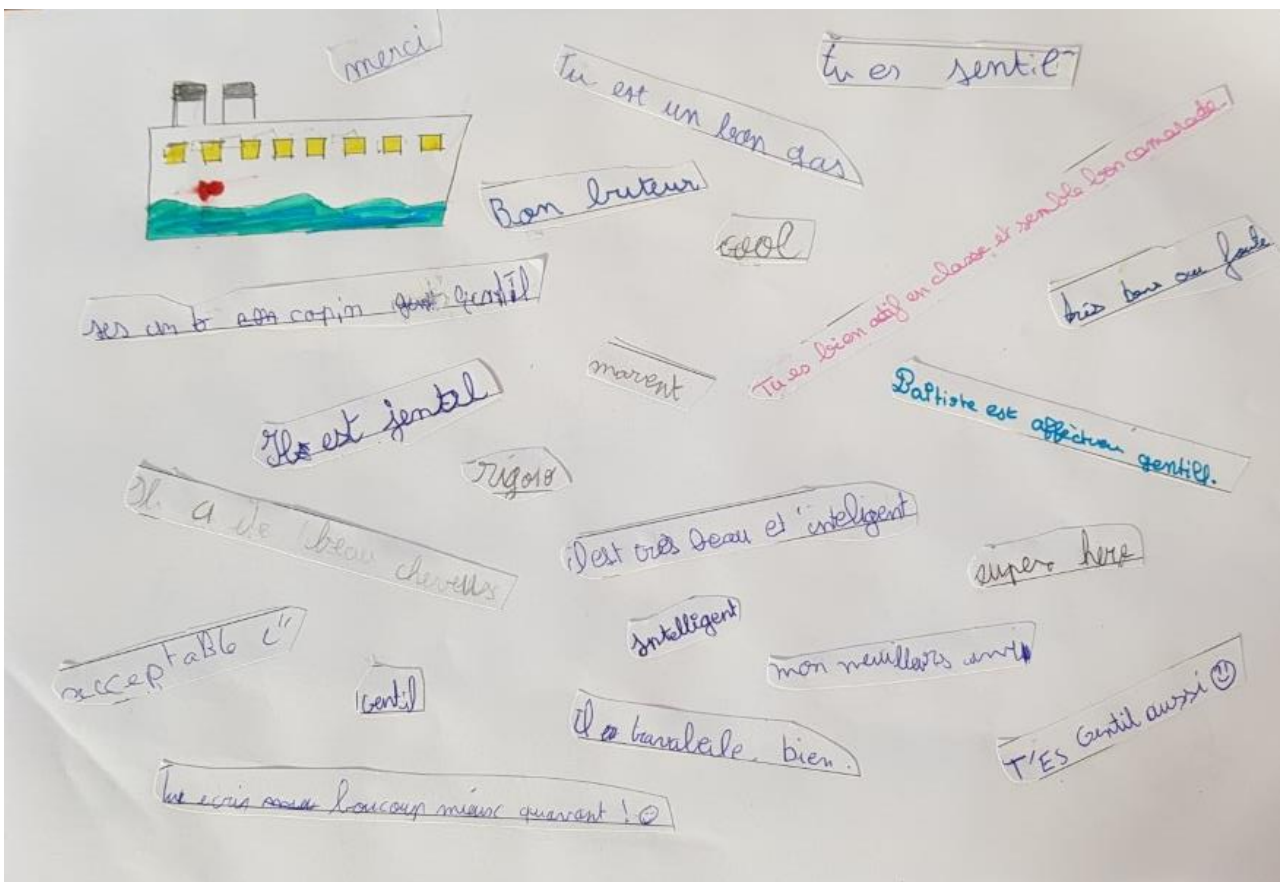 merci
Tu est un bon gas
tu es sentil
Bon buteur
cool
Tu es bien actif en classe et semble bon camarade.
très bons au foute
ses un b copin gentil
marent
Baptiste est affèctueu gentill.
Il est jentel
rigolo
Il a de beau cheveus
il est très beau et inteligent
super hero
Intelligent
acceptable
mon meuilleurs ami
gentil
T'ES Gentil aussi ☺
Il travaleile bien.
tu ecris boucoup mieux quavant ! ☺